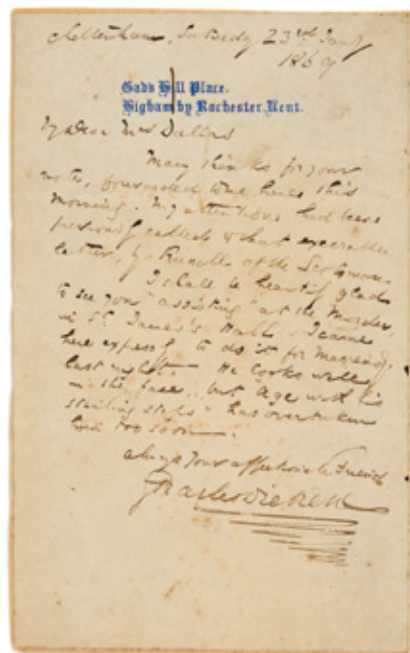 Cheltenham, Saturday 23rd Jany
1869
Gad's Hill Place.
Higham by Rochester, Kent.
My dear Mrs Dallas
Many thanks for your
note, forwarded to me here this
morning. My attention had been
previously called to that execrable
letter, by Russell of the Scotsman.
I shall be heartily glad
to see you "assisting" at the Murder,
in St. James's Hall. I came
here expressly to do it for Macready,
last night. He looks well
in the face, but "Age with his
stealing steps" has overtaken
him too soon.
always your affectionate Friend
Charles Dickens